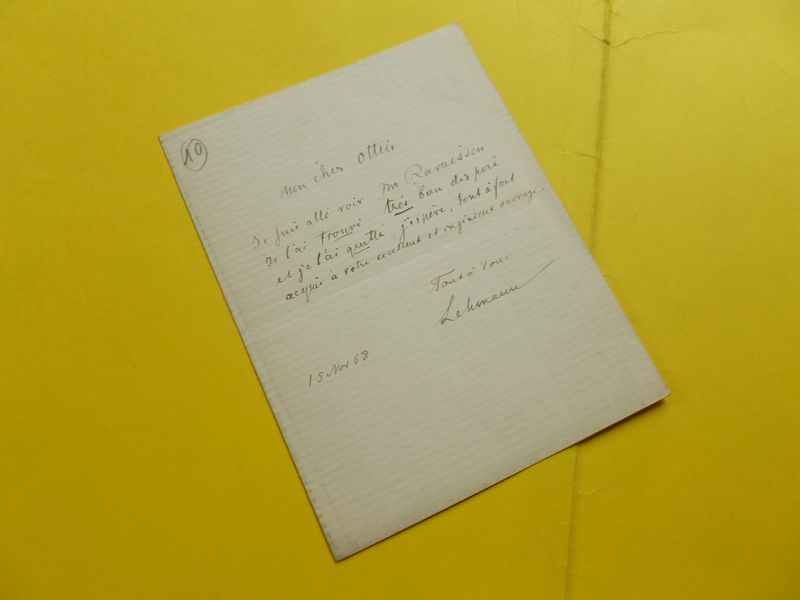 10
Mon cher Ottin
Je suis allé voir Mr Ravaisson
Je l'ai trouvé très bien disposé
et je l'ai quitté, j'espère, tout à fait
acquis à votre excellent et ingénieux ouvrage.
Tout à vous
Lehmann
15 Nov 68